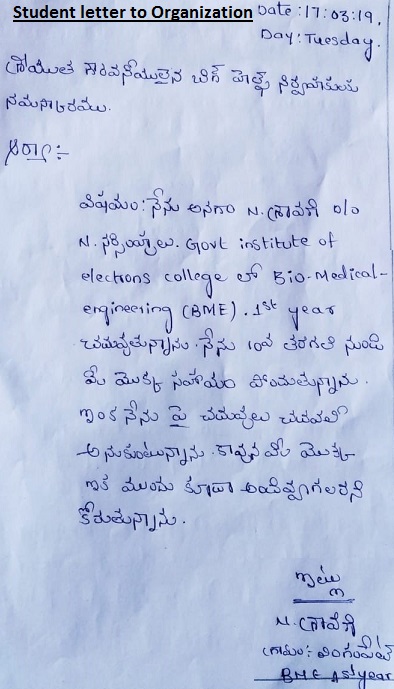 Student letter to Organization
Date: 17:03:19,
Day: Tuesday.
శ్రీయుత గౌరవనీయులైన బిగ్ హెల్ప్ నిర్వాహకులకు
నమస్కారము.
ఆర్యా:-
విషయం: నేను అనగా N. శ్రావణి D/o
N. నర్సియ్యాలు. Govt institute of
electrons college లో Bio-Medical-
engineering (BME). 1st year
చదువుతున్నాను. నేను 10వ తరగతి నుండి
మీ యొక్క సహాయం పొందుతున్నాను.
ఇంక నేను పై చదువులు చదవాలి
అనుకుంటున్నాను. కావున మీ యొక్క
ఇక ముందు కూడా అందివ్వగలరని
కోరుతున్నాను.
ఇట్లు
N. శ్రావణి
గ్రామం: లింగంపేట్
BME 1st year